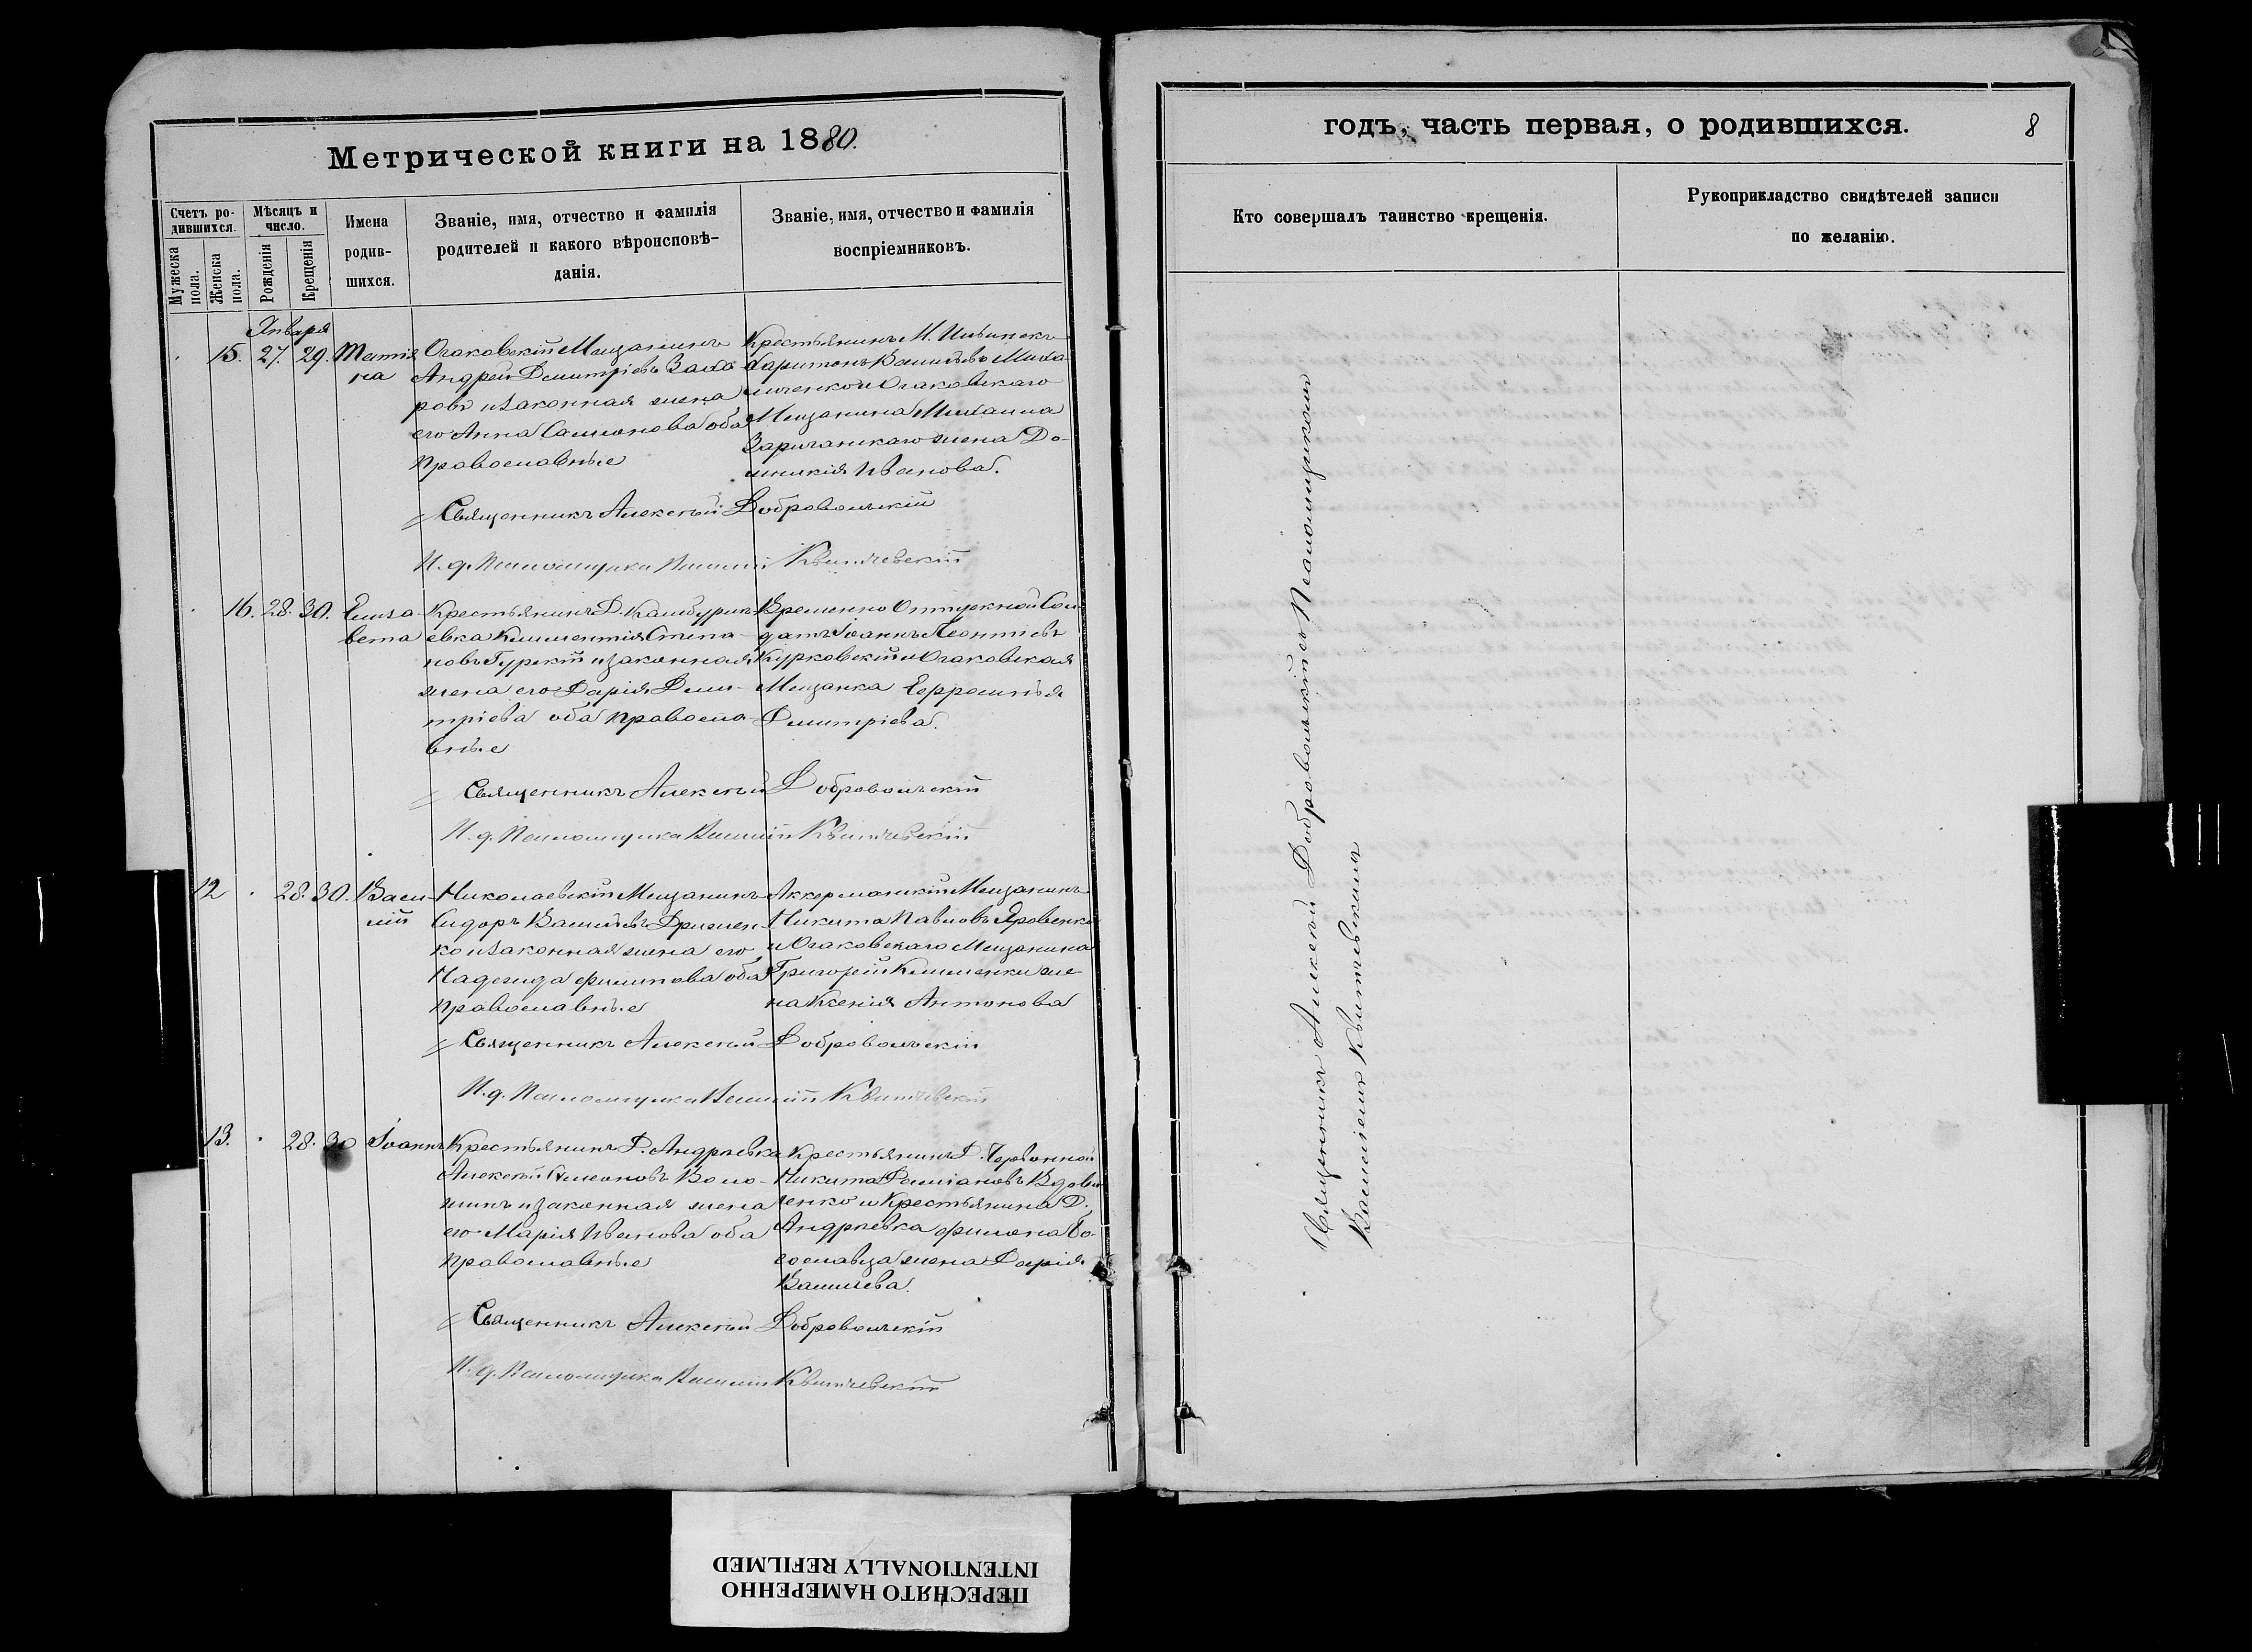 Метрической книги на 1880.
Счетъ ро-
дившихся.
Мѣсяцъ и
число.
Мужеска пола.
Женска пола.
Рожденія
Крещенія
Имена
родив-
шихся.
Званіе, имя, отчество и фамилія
родителей и какого вѣроисповѣ-
данія.
Званіе, имя, отчество и фамилія
воспріемниковъ.
Января
15. 27. 29.
Очаковскій Мещанинъ
Андрей Димитріевъ
ровъ и законная жена
его Анна Самсонова оба
православные
Крестьянинъ М.
Харитонъ Васильевъ Миха
Очаковскаго
Мещанина Михаила
Заричанскаго жена До-
Иванова.
Священникъ Алексѣй Добровольскій
И. д. Псаломщика Василій Квитчевскій
16. 28. 30. Елиза-
вета
Крестьянинъ Д. Камбурли-
евка Климентій Степа-
новъ Гурскій и законная
жена его Дарія Дим-
тріева оба правосла-
вные
Временно Отпускной Сол-
датъ Іоаннъ Леонтіевъ
Курковскій и Очаковская
Мещанка Ефросинья
Дмитріева.
Священникъ Алексѣй Добровольскій
И. д. Псаломщика Василій Квитчевскій
12 28. 30. Васи-
лій
Николаевскій Мещанинъ
Сидоръ Васильевъ
ко и законная жена его
Надежда Филипова оба
православные
Аккерманскій Мещанинъ
Никита Павловъ Яровенко
и Очаковскаго Мещанина
Григорій Клименки же-
на Ксенія Антонова
Священникъ Алексѣй Добровольскій
И. д. Псаломщика Василій Квитчевскій
13. 28. 30 Іоаннъ
Крестьянинъ Д. Андреевка
Алексѣй Симеоновъ Воло-
шинъ и законная жена
его Марія Иванова оба
православные
Крестьянинъ Д. Червонной
Никита Даміановъ Вдови-
ченко и Крестьянина Д.
Андреевка Филиона Бо-
гославца жена Дарія
Васильева.
Священникъ Алексѣй Добровольскій
И. д. Псаломщика Василій Квитчевскій
годъ, часть первая, о родившихся. 8
Кто совершалъ таинство крещенія.
Рукоприкладство свидѣтелей записи
по желанію.
Священникъ Алексѣй Добровольскій съ Псаломщикомъ
Василіемъ Квитчевскимъ
ПЕРЕСНЯТО НАМЕРЕННО
INTENTIONALLY REFILMED